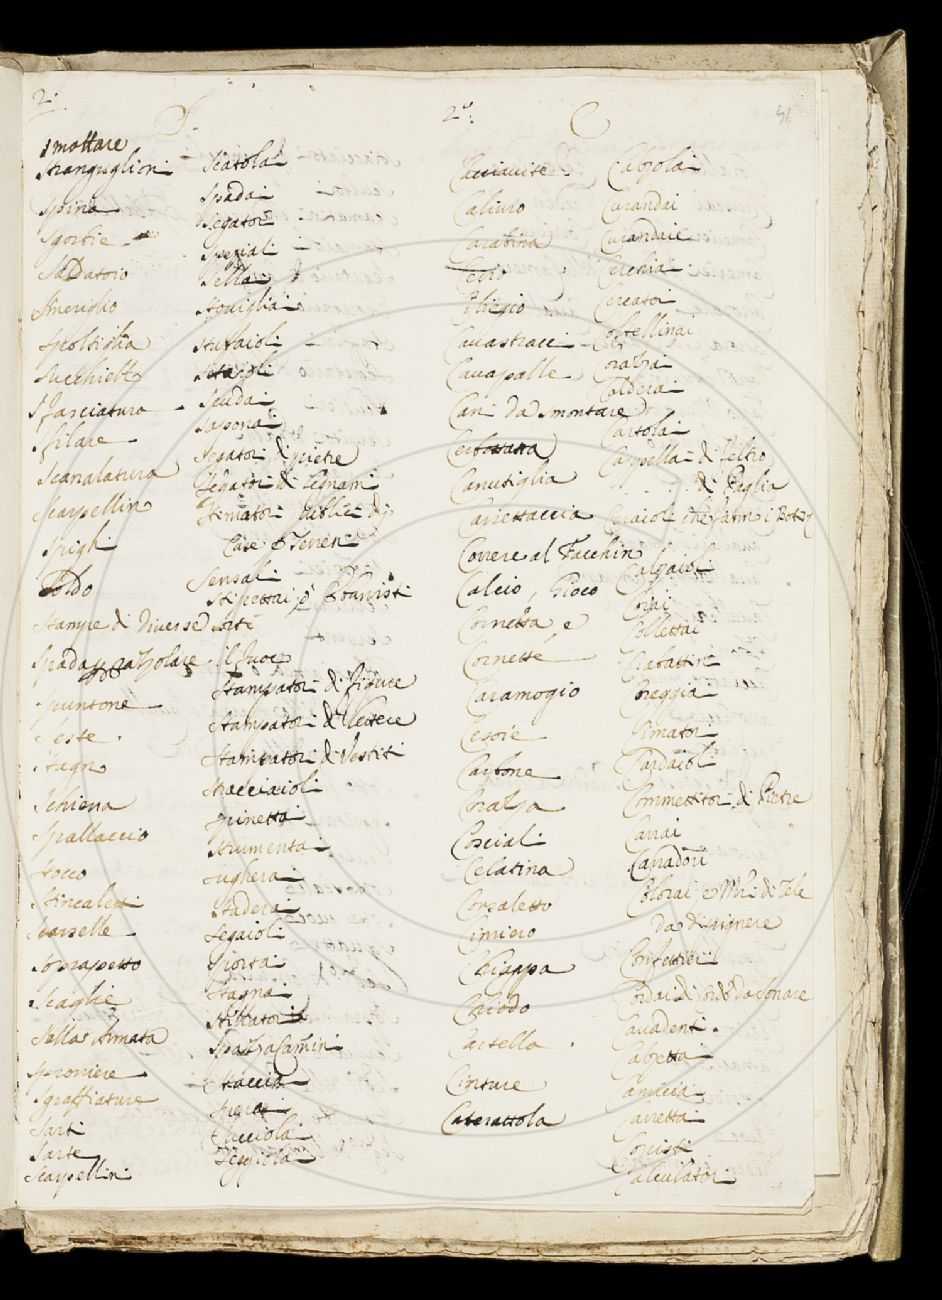 2.
S.
smottare
Stranguglioni
Spina
Sgorbie
Saldatoio
Smeriglio
Spoltiglia
Succhiello
Sfasciatura
Sfilare
Scanalatura
Scarpellino
Spighi
Soldo
Stampe di diverse sorti
Spada
Spuntone
Teste
Stagno
Schiena
Spallaccio
Stocco
Stincaletti
Scarselle
Soprapetto
Scaglie
Sella Armata
Sproniere
Sgraffiature
Sarti
Sarte
Scarpellini
Scatolai
Spadai
Segatori
Speziali
Sellai
Stovigliai
Stufaioli
Setaioli
Scudai
Saponai
Segatori di pietre
Segatori di Legnami
Stimatori publici di
Case e Terreni
Sensali
Stipettai o Ebanisti
Stampatori di figure
Stampatori di Lettere
Stampatori di Vestiti
Stracciaioli
Spinettai
Strumentai
Sugherai
Staderai
Segaioli
Sportai
Stagnai
Stillatori
SpazzaCamini
Stacciai
Seggiolai
2a.
C
56
Cacciavite
Caliuro
Carabina
Cesto
Ciliegio
Cavastracci
Cavapalle
Cani da smontare
Canutiglia
Carrettaccia
Correre al Facchino
Calcio, Gioco
Cornetta, e
Cornette
Caramogio
Cesoie
Carbone
Corazza
Cosciali
Celatina
Corsaletto
Cimiero
Chiappa
Chiodo
Cartella
Cinture
Caterattola
Calzolai
Curandai
Curandaie
Cerchiai
Cercatori
Coltellinai
Corazzai
Calderai
Cartolai
Cappellai di Feltro
. . . . di Paglia
Calzaioli
Coiai
Collettai
Ciabattini
Coreggiai
Cimatori
Cardaioli
Commettitori di Pietre
Carrai
Cavadori
Colorai, e Mri. di Tele
da dipignere
Confettieri
Cordai di corde da sonare
Cavadenti.
Calzettai
Camiciai
Carrettai
Coristi
Calculatori